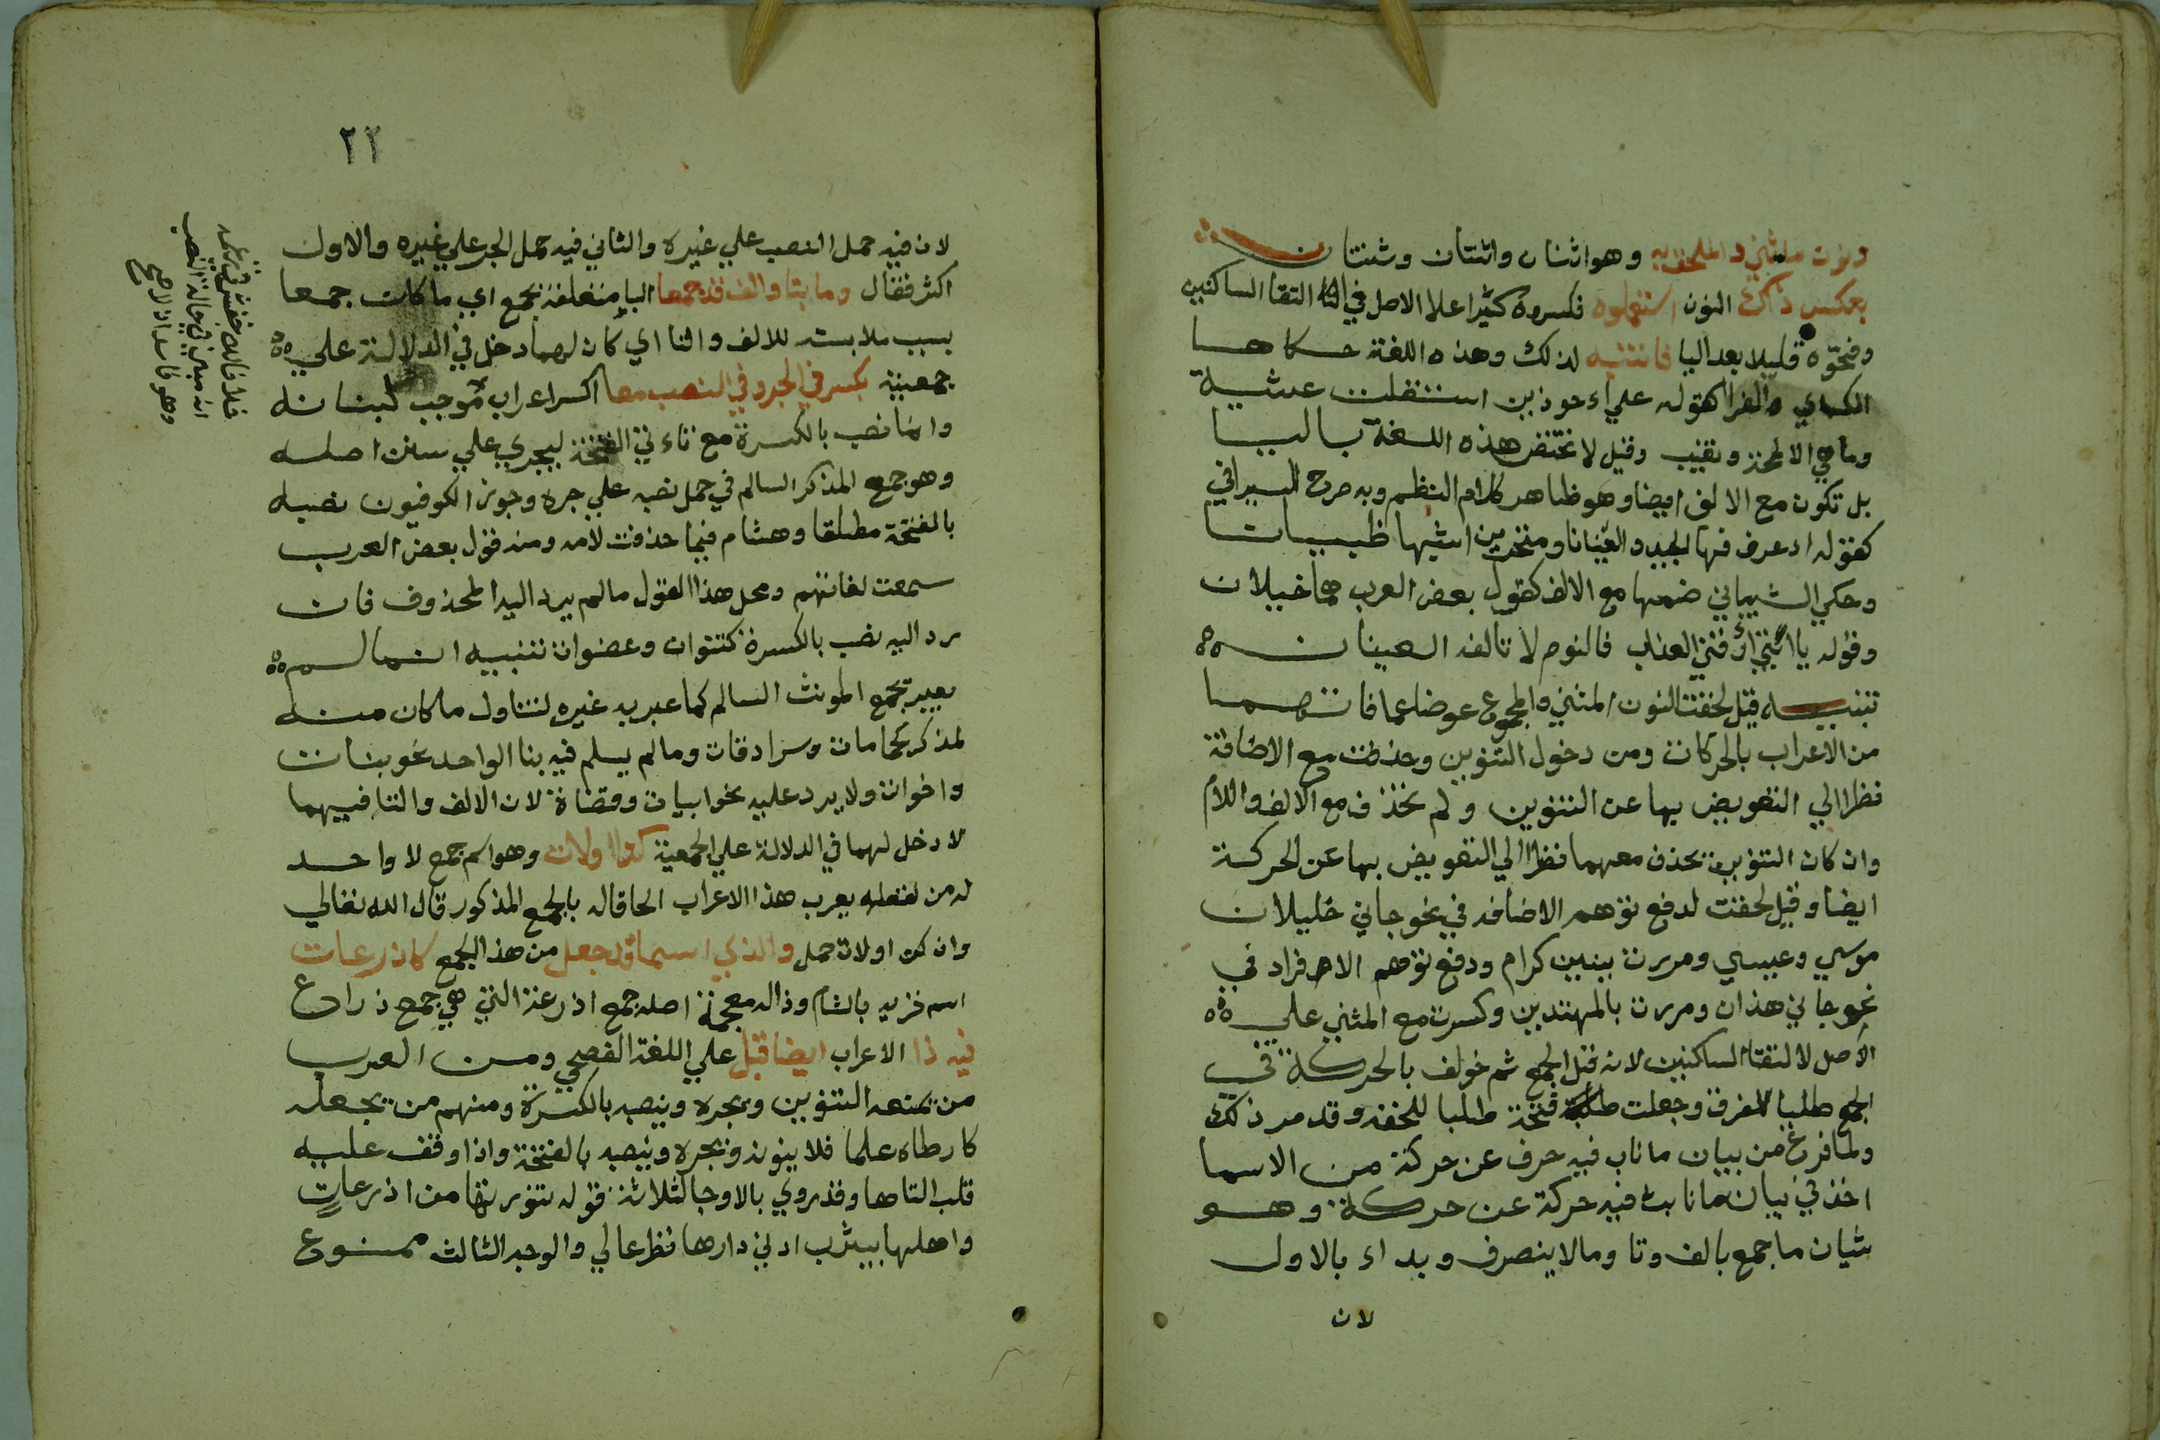 ونون ما ثني والملحق به وهو اثنان واثنتان وثنتان
بعكس ذاك النون استعملوه فكسروه كثيرا علا الاصل في التقا الساكنين
وفتحوه قليلا بعد اليا فانتبه لذلك وهذه اللغة حكاها
الكساي والفرا كقوله علي احوذيين استقلت عشية
وما هي الا لمحة وتغيب وقيل لا تختص هذه اللغة باليا
بل تكون مع الالف ايضا وهو ظاهر كلام النظم وبه صرح السيرافي
كقوله اعرف منها الجيد والعينانا ومنخرين اشبها ظبيانا
وحكي الشيباني ضمها مع الالف كقول بعض العرب هما خليلان
وقوله يا ابتي ارقني القذان فالنوم لا تالفه العينان
تنبيه قيل لحقت النون المثني والمجموع عوضا عما فاتهما
من الاعراب بالحركات ومن دخول التنوين وحذفت مع الاضافة
نظرا الي التعويض بها عن التنوين ولم تحذف مع الالف واللام
وان كان التنوين يحذف معهما نظرا الي التعويض بها عن الحركة
ايضا وقيل لحقت لدفع توهم الاضافة في نحو جاني خليلان
موسي وعيسي ومررت ببنين كرام ودفع توهم الافراد في
نحو جاني هذان ومررت بالمهتدين وكسرت مع المثني علي
الاصل لالتقا الساكنين لانه قبل الجمع ثم خولف بالحركة في
الجمع طلبا للفرق وجعلت فتحة طلبا للخفة وقد مر ذلك
ولما فرغ من بيان ما ناب فيه حرف عن حركة من الاسما
اخذ في بيان ما نابت فيه حركة عن حركة وهو
شيان ما جمع بالف وتا وما لا ينصرف وبداء بالاول
لان
٢٢
لان فيه حمل النصب علي غيره والثاني فيه حمل الجر علي غيره والاول
اكثر فقال وما بتا والف قد جمعا البا متعلقة بجمع اي ما كان جمعا
بسبب ملابسته للالف والتا اي كان لهما دخل في الدلالة علي
جمعيته يكسر في الجر وفي النصب معا كسر اعراب موجب لبنانه
وانما نصب بالكسرة مع تاءتي الفتحة ليجري علي سنن اصله
وهو جمع المذكر السالم في حمل نصبه علي جره وجوز الكوفيون نصبه
بالفتحة مطلقا وهشام فيما حذفت لامه ومنه قول بعض العرب
سمعت لغاتهم ومحل هذا القول ما لم يرد اليه المحذوف فان
رد اليه نصب بالكسرة كسنوات وعضوات تنبيه انما لم
يعبر بجمع المونث السالم كما عبر به غيره لتناول ما كان منه
لمذكر كحمامات وسرادقات وما لم يسلم فيه بنا الواحد نحو بنات
واخوات ولا يرد عليه نحو ابيات وقضاة لان الالف والتا فيهما
لا دخل لهما في الدلالة علي الجمعية كذا اولات وهو اسم جمع لا واحد
له من لفظه يعرب هذا الاعراب الحاقا له بالجمع المذكور قال الله تعالي
وان كن اولات حمل والذي اسما قد جعل من هذا الجمع كاذرعات
اسم قرية بالشام وذاله معجمة اصله جمع اذرعة التي هي جمع ذراع
فيه ذا الاعراب ايضا قبل علي اللغة الفصحي ومن العرب
من يمنعه التنوين ويجره وينصبه بالكسرة ومنهم من يجعله
كارطاه علما فلا ينونه ويجره وينصبه بالفتحة واذا وقف عليه
قلب التا ها وقد روي بالاوجه الثلاثة قوله تنورتها من اذرعات
واهلها بيثرب ادني دارها نظر عالي والوجه الثالث ممنوع
خلافا للاخفش في زعمه
انه مبني في حالة النصب
وهو فاسد اذ لا